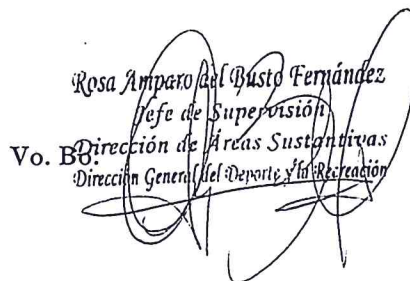 Rosa Amparo del Busto Fernández
Jefe de Supervisión
Vo. Bo.
Dirección de Áreas Sustantivas
Dirección General del Deporte y la Recreación